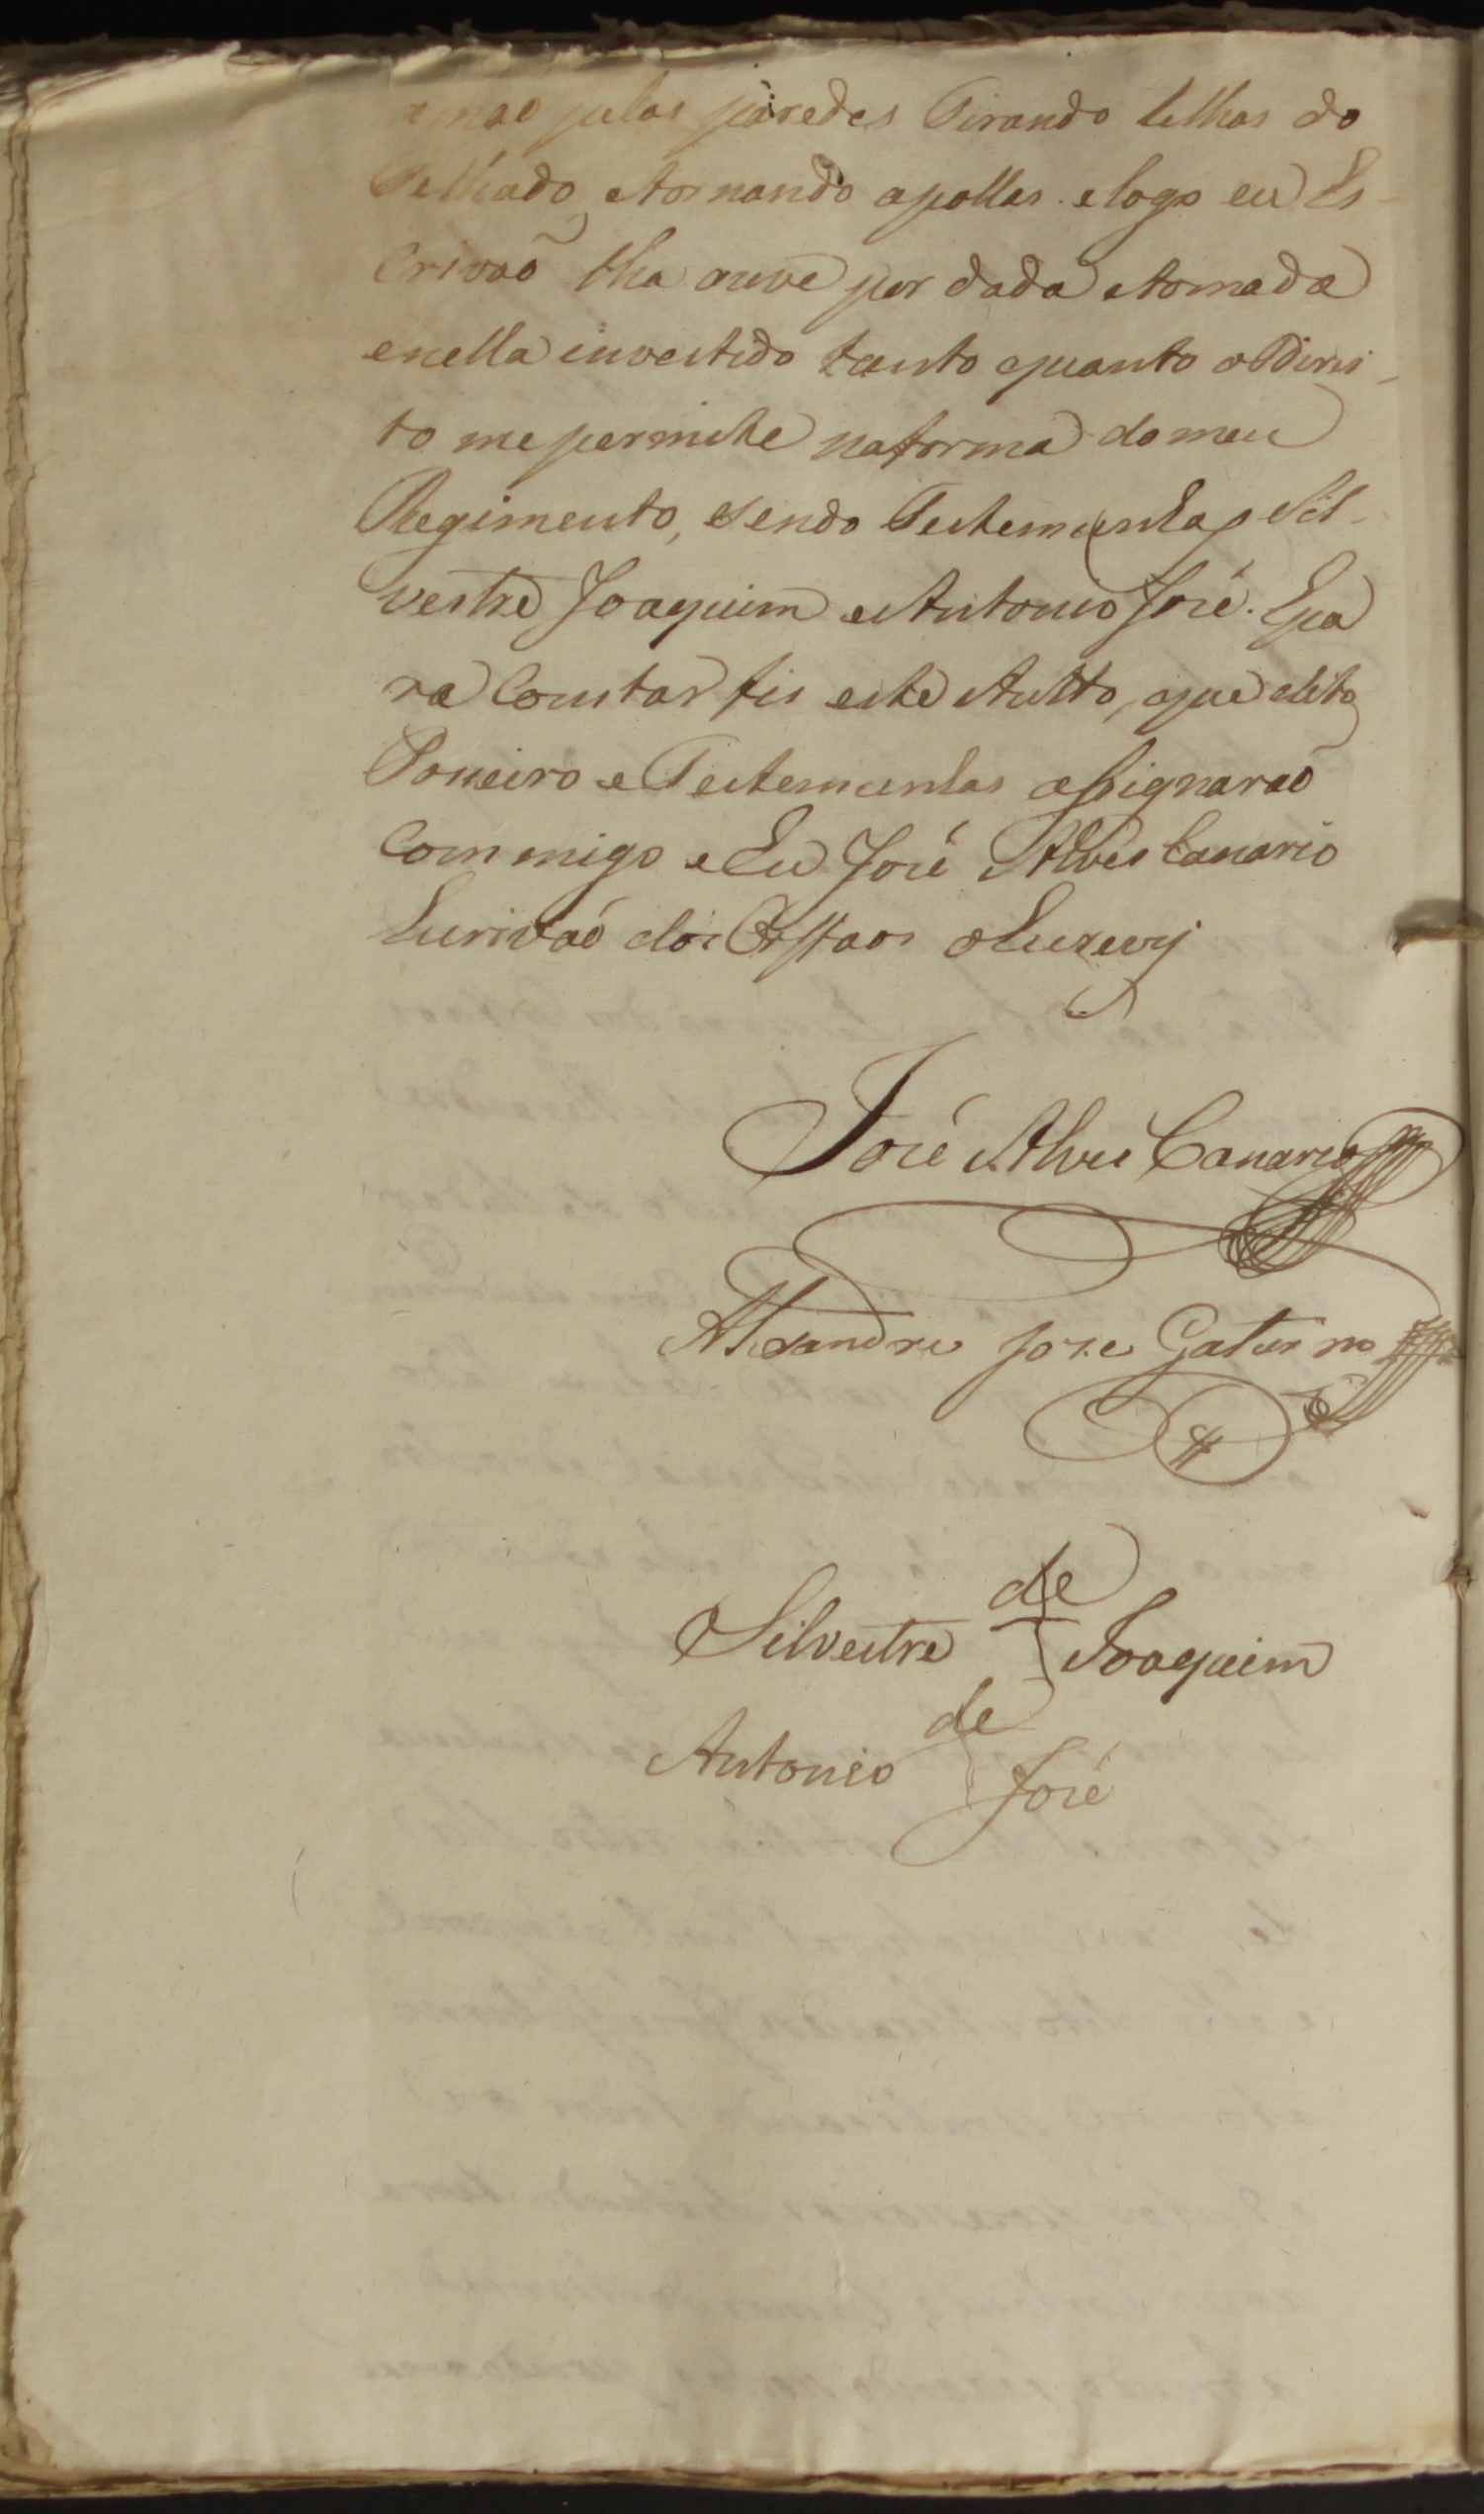 amaõ pelas paredes Tirando telhas do
Telhado, etornando apollas. elogo eu Es-
Crivaõ lha auve por dada etomada
enella investido tanto quanto oDirei-
to mepermite naforma domeu
Regimento, esendo Testemunhas Sil-
vestre Joaquim eAntonio José. Epa
ra Constar fis este Autto, que dito
Poneiro eTestemunhas assignaraõ
Commigo eEu José Alves Canario
Escrivaõ dos Orffaos oEscrevj
José Alves Canario
Alexandre Jose Gaturno
de
Silvestre Joaquim
de
Antonio José